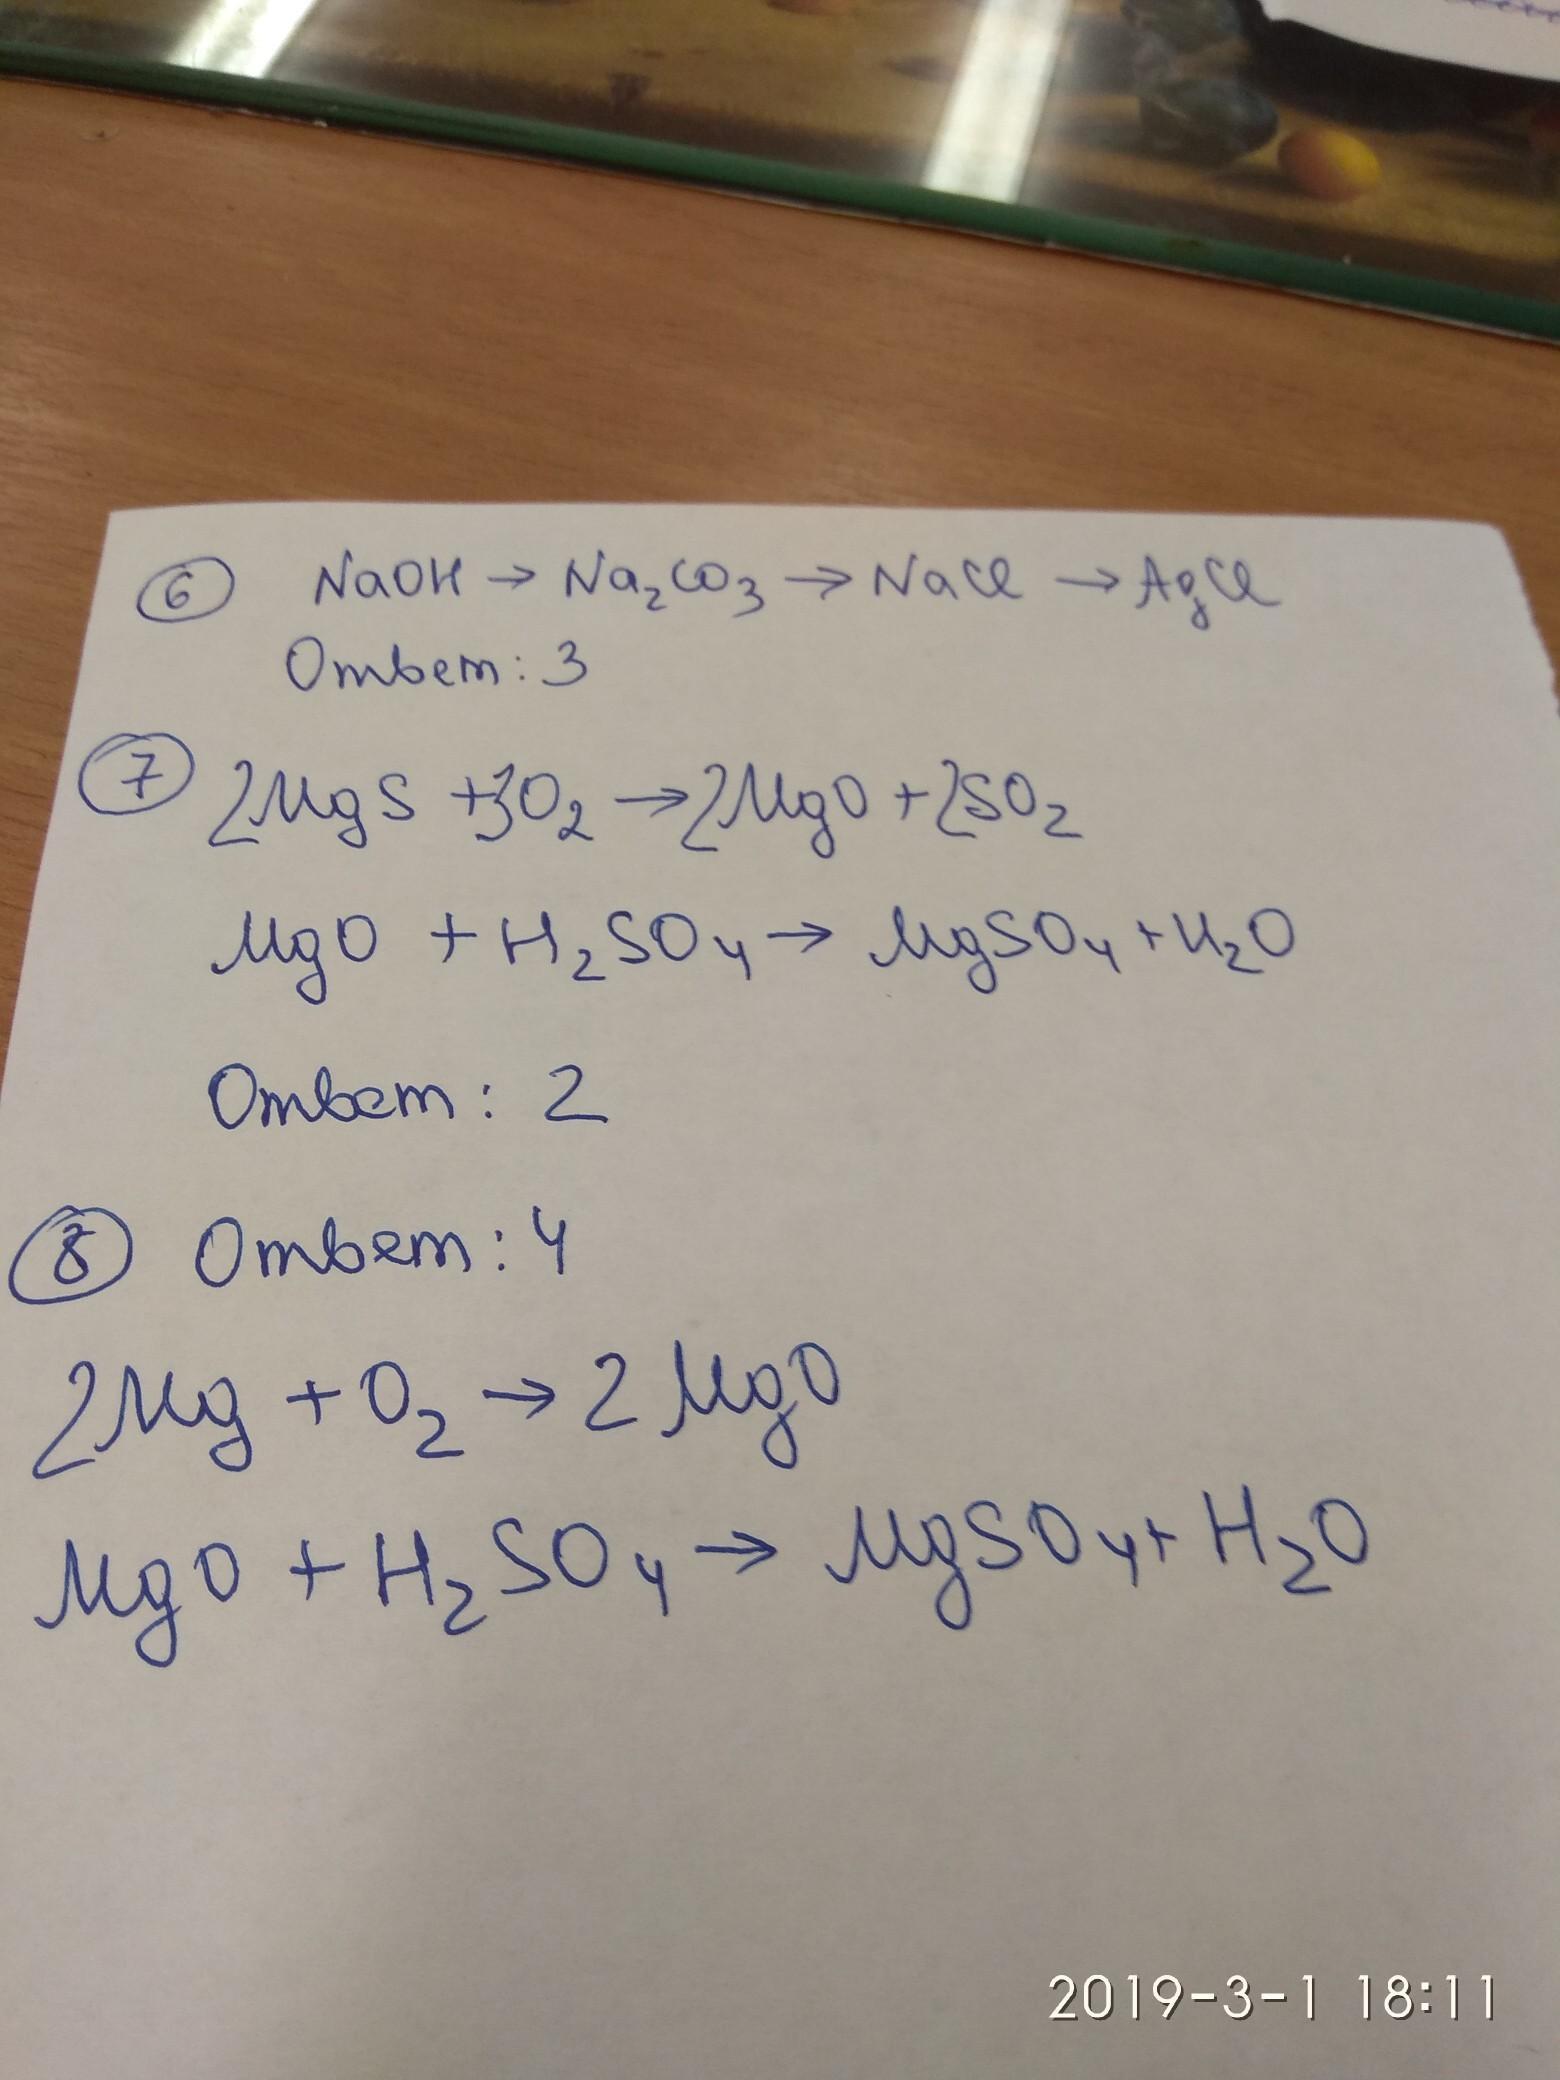 6 NaOH → Na₂CO₃ → NaCl → AgCl
Ответ: 3
7 2MgS + 3O₂ → 2MgO + 2SO₂
MgO + H₂SO₄ → MgSO₄ + H₂O
Ответ: 2
8 Ответ: 4
2Mg + O₂ → 2MgO
MgO + H₂SO₄ → MgSO₄ + H₂O
2019-3-1 18:11